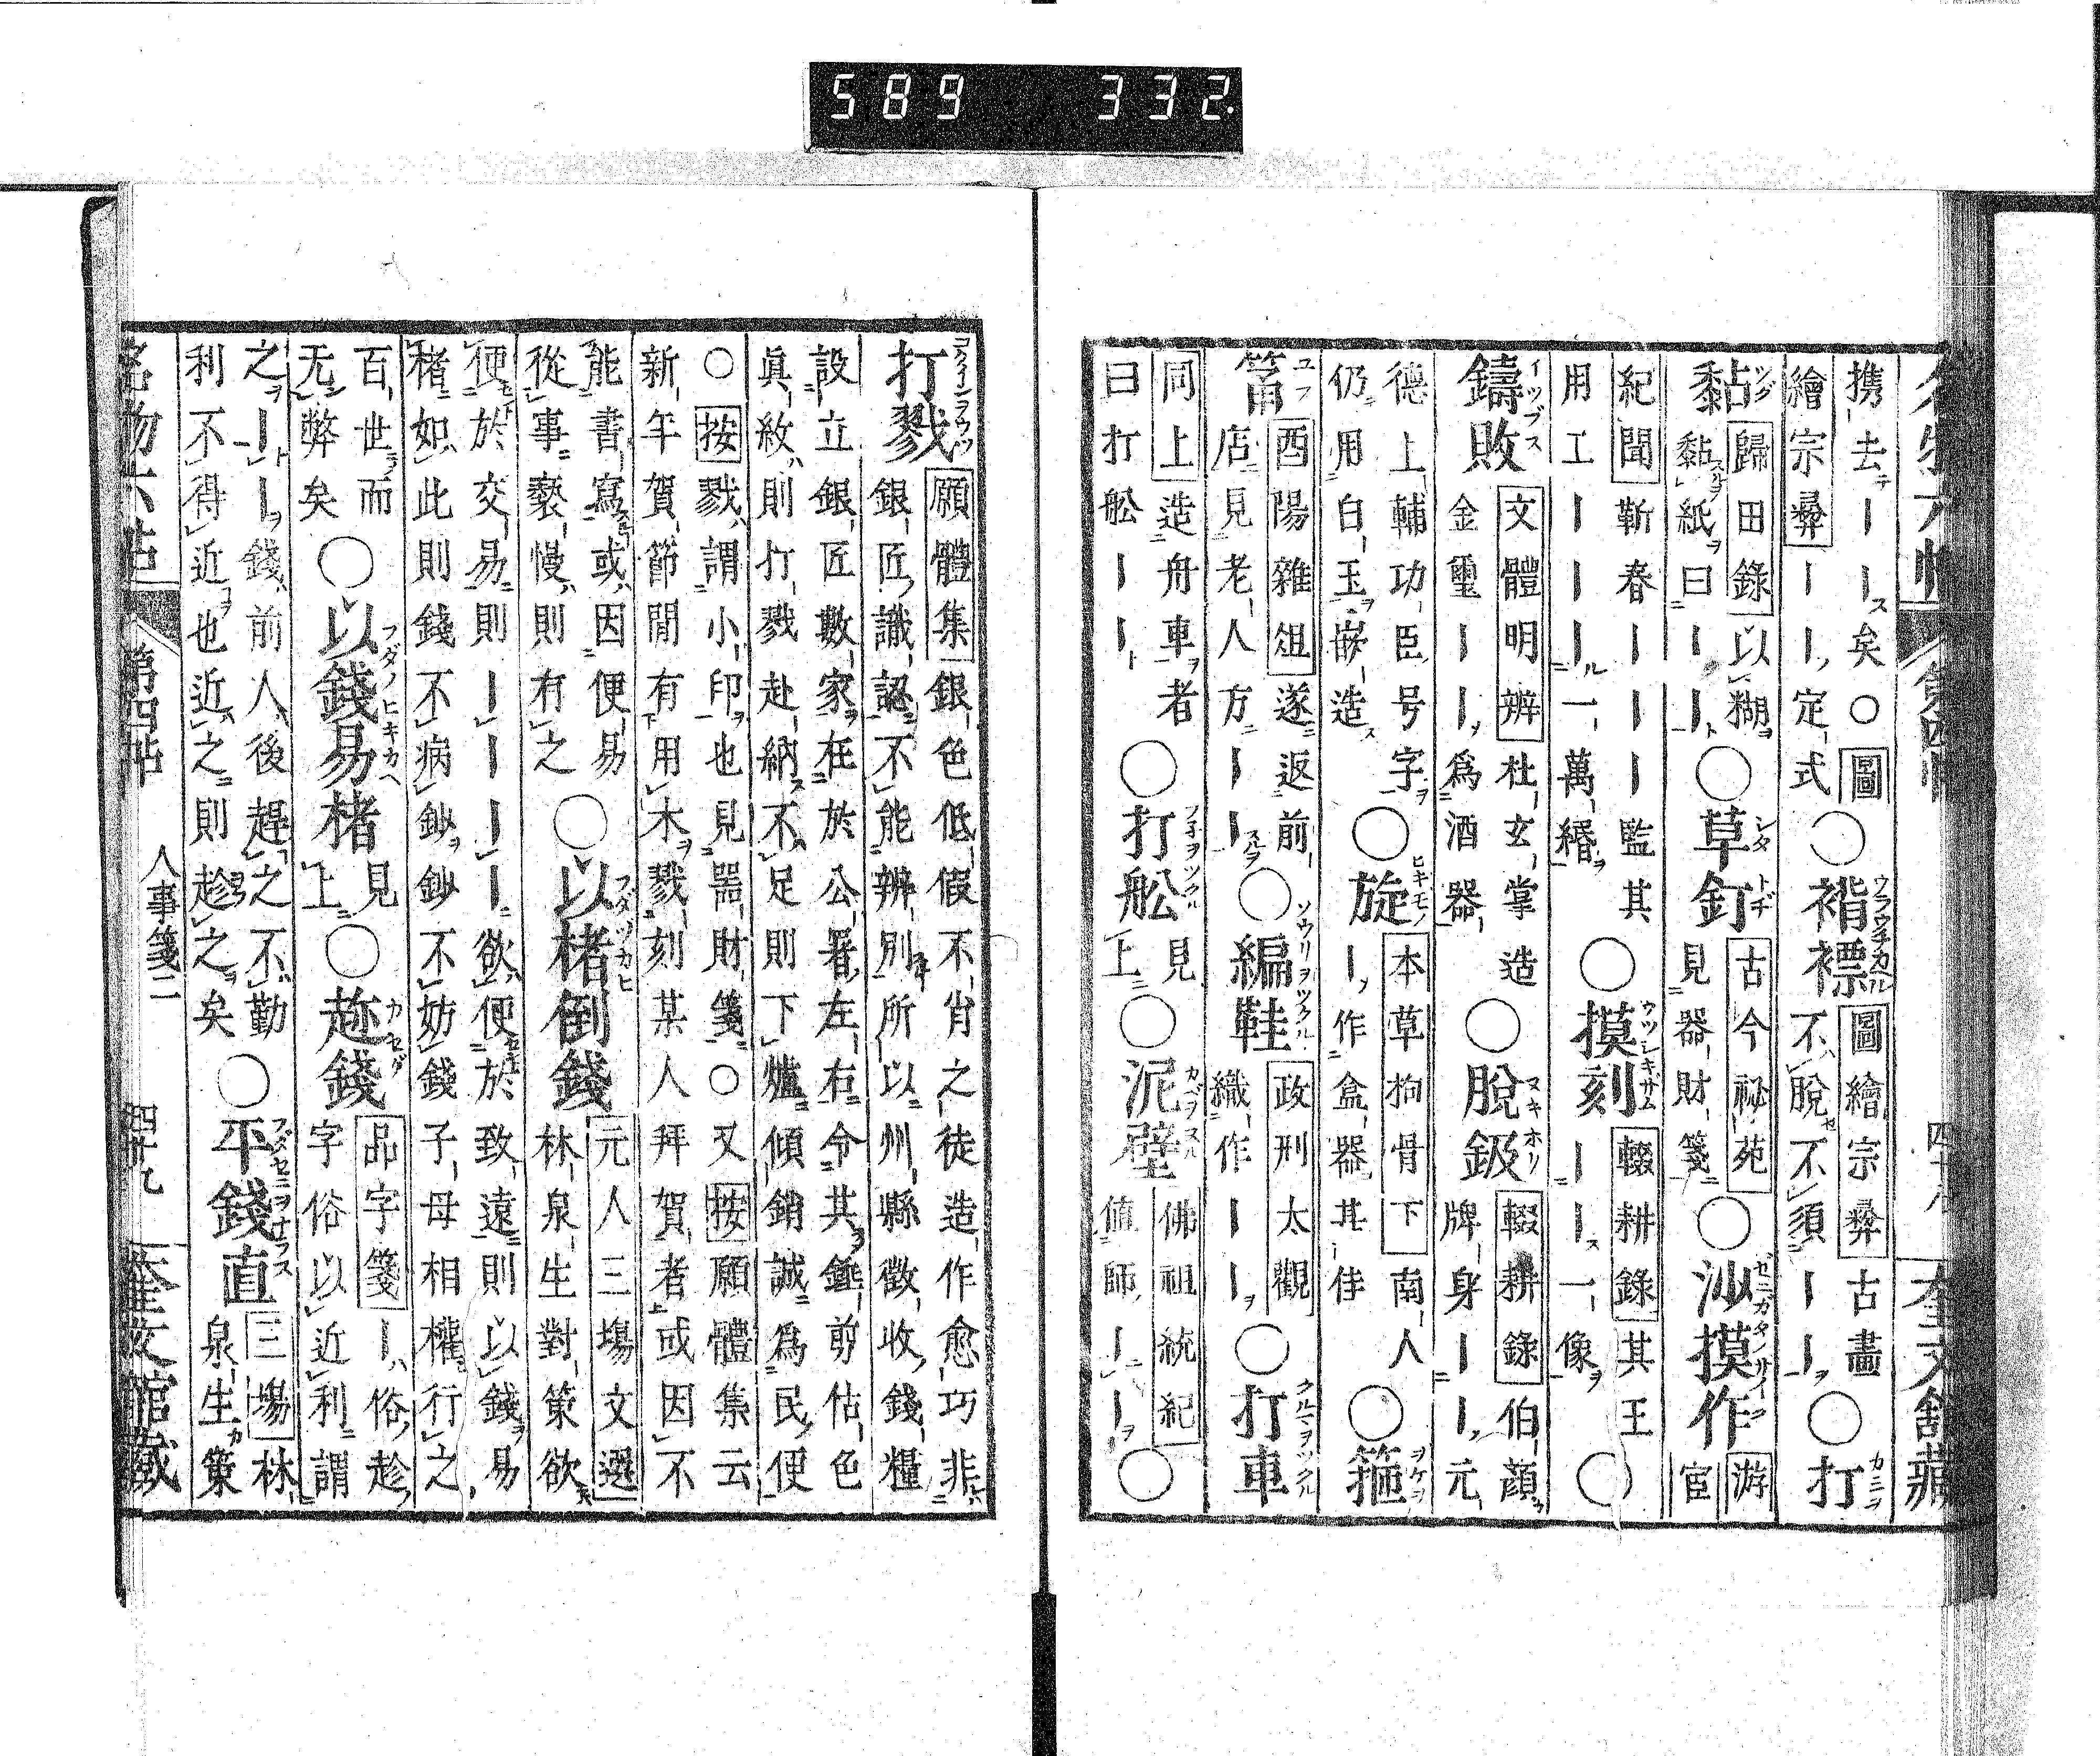 名物六帖 第四帖 四十八 奎文館藏
携去｜｜矣○圖
繪宗彛｜｜定式
○褙褾
圖繪宗彛古畫
不脱不須｜｜
○打
黏
歸田錄以糊
黏紙曰｜｜
○草釘
古今祕苑
見器財箋
○沙摸作
游
宦
紀聞靳春｜｜｜監其
用工｜｜｜一萬緡
○摸刻
輟耕錄其王
｜｜一像
○
鑄敗
文體明辨杜玄掌造
金璽｜｜爲酒器
○脫鈒
輟耕錄伯顏
牌身｜｜元
德上輔功臣号字
仍用白玉嵌造
○旋
本草枸骨下南人
｜作盒器其佳
○箍
筩
酉陽雜俎遂返前
店見老人方｜｜
○編鞋
政刑太觀
織作｜｜
○打車
同上造舟車者
曰打舩｜｜
○打舩
見
上
○泥壁
佛祖統紀
値師｜｜
○
打戮
願體集銀色低假不肖之徒造作愈巧非
銀匠識認不能辨別所以州縣徵收錢糧
設立銀匠數家在於公署左右令其鎚剪估色
眞紋則打戮赴納不足則下爐傾銷誠爲民便
○按戮謂小印也見器財箋○又按願體集云
新年賀節間有用木戮刻某人拜賀者或因不
能書寫或因便易
從事褻慢則有之
○以楮倒錢
元人三場文選
林泉生對策欲
便於交易則｜｜｜｜欲便於致遠則以錢易
楮如此則錢不病鈔鈔不妨錢子母相權行之
百世而
无弊矣
○以錢易楮
見
上
○趂錢
品字箋｜俗趁
字俗以近利謂
之｜｜錢前人後趕之不勤
利不得近也近之則趁之矣
○平錢直
三場林
泉生策
名物六帖 第四帖 人事箋二 四十九 奎文館藏
589 332.